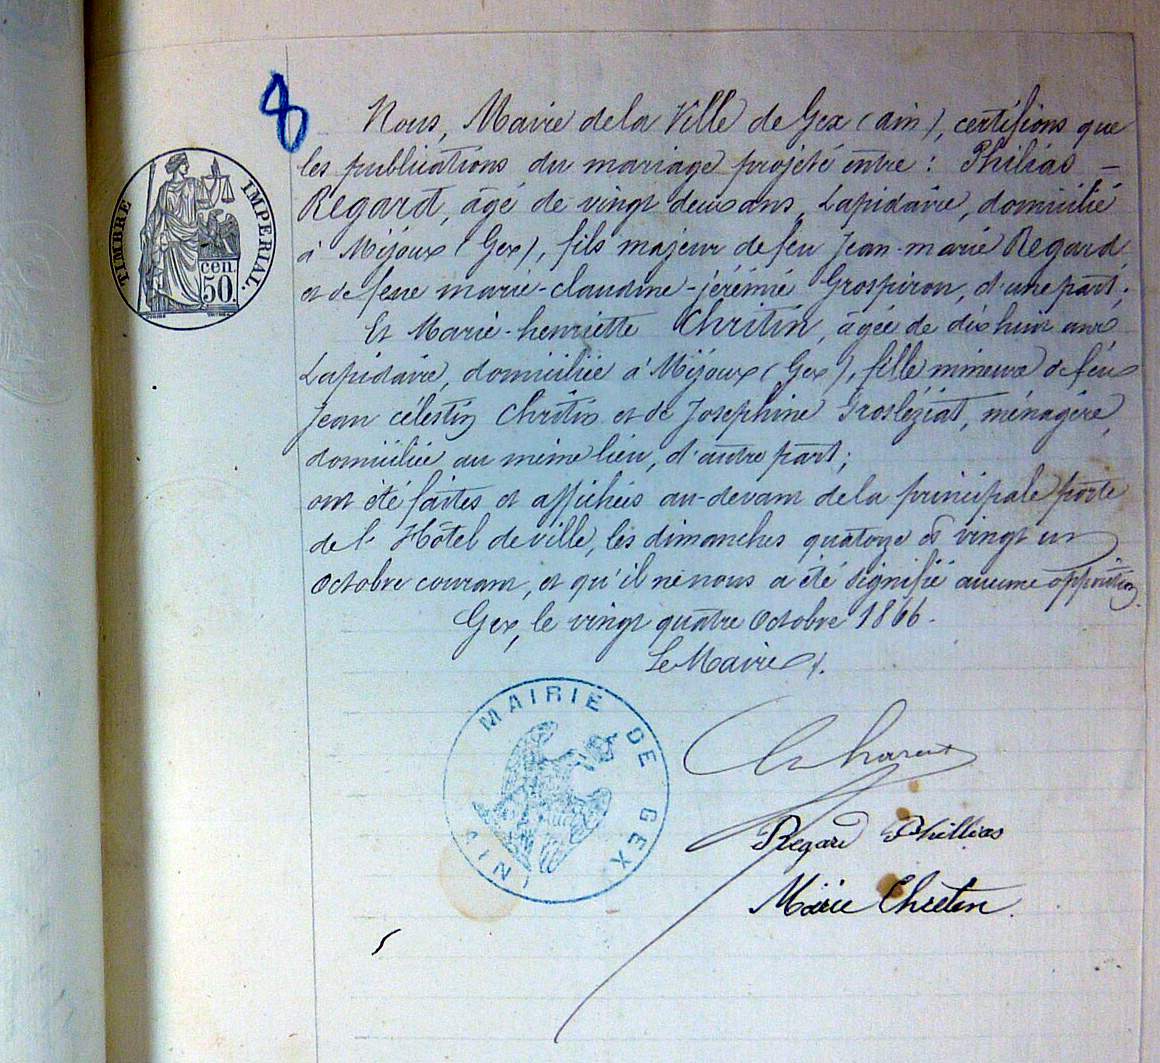 8
TIMBRE IMPERIAL.
cen.
50.
Nous, Maire de la Ville de Gex (ain), certifions que
les publications du mariage projeté entre : Philias –
Regard, âgé de vingt deux ans, Lapidaire, domicilié
à Mijoux (Gex), fils majeur de feu Jean-marie Regard
et de feue marie-claudine-jérémie Grospiron, d'une part;
Et Marie-henriette Chritin, âgée de dix huit ans
Lapidaire, domiciliée à Mijoux (Gex), fille mineure de feu
Jean célestin Chritin et de Josephine Grosléziat, ménagère,
domiciliée au même lieu, d'autre part;
ont été faites et affichées au-devant de la principale porte
de l'Hôtel de ville, les dimanches quatorze et vingt un
Octobre courant, et qu'il ne nous a été signifié aucune opposition.
Gex, le vingt quatre Octobre 1866.
Le Maire
MAIRIE DE GEX
(AIN)
Regard Phillias
Marie Chretin.